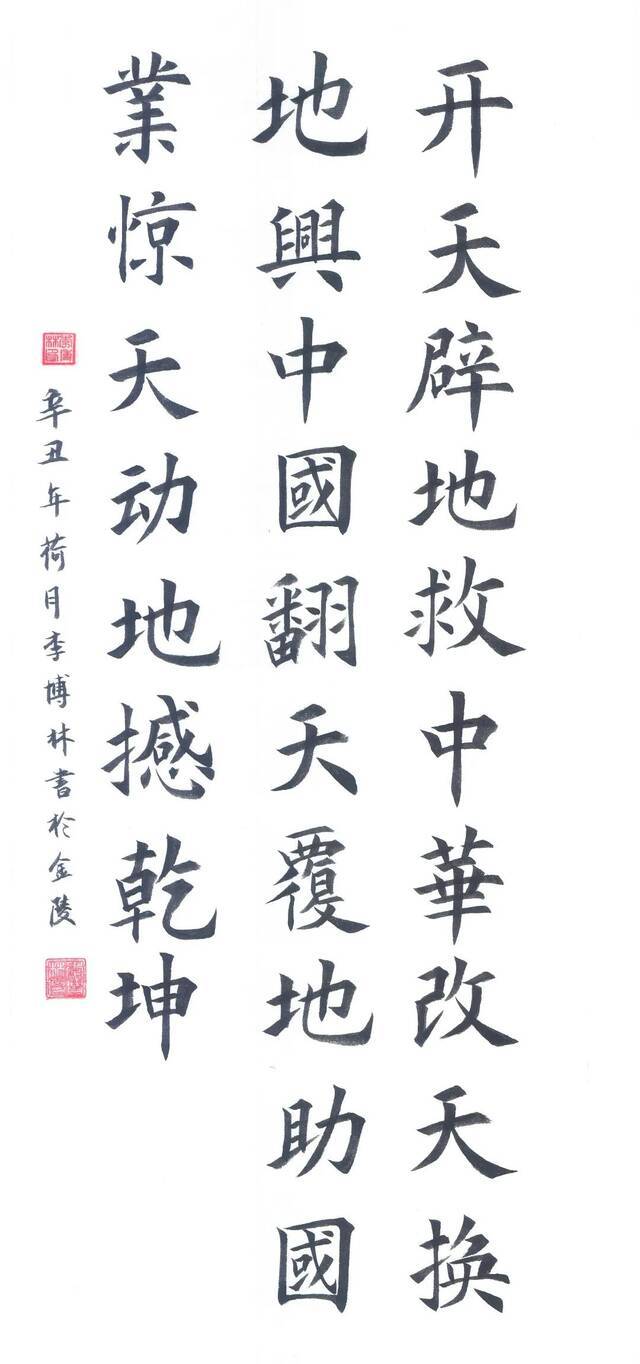 开天辟地救中華改天换
地興中國翻天覆地助國
業惊天动地撼乾坤
辛丑年荷月李博林書於金陵